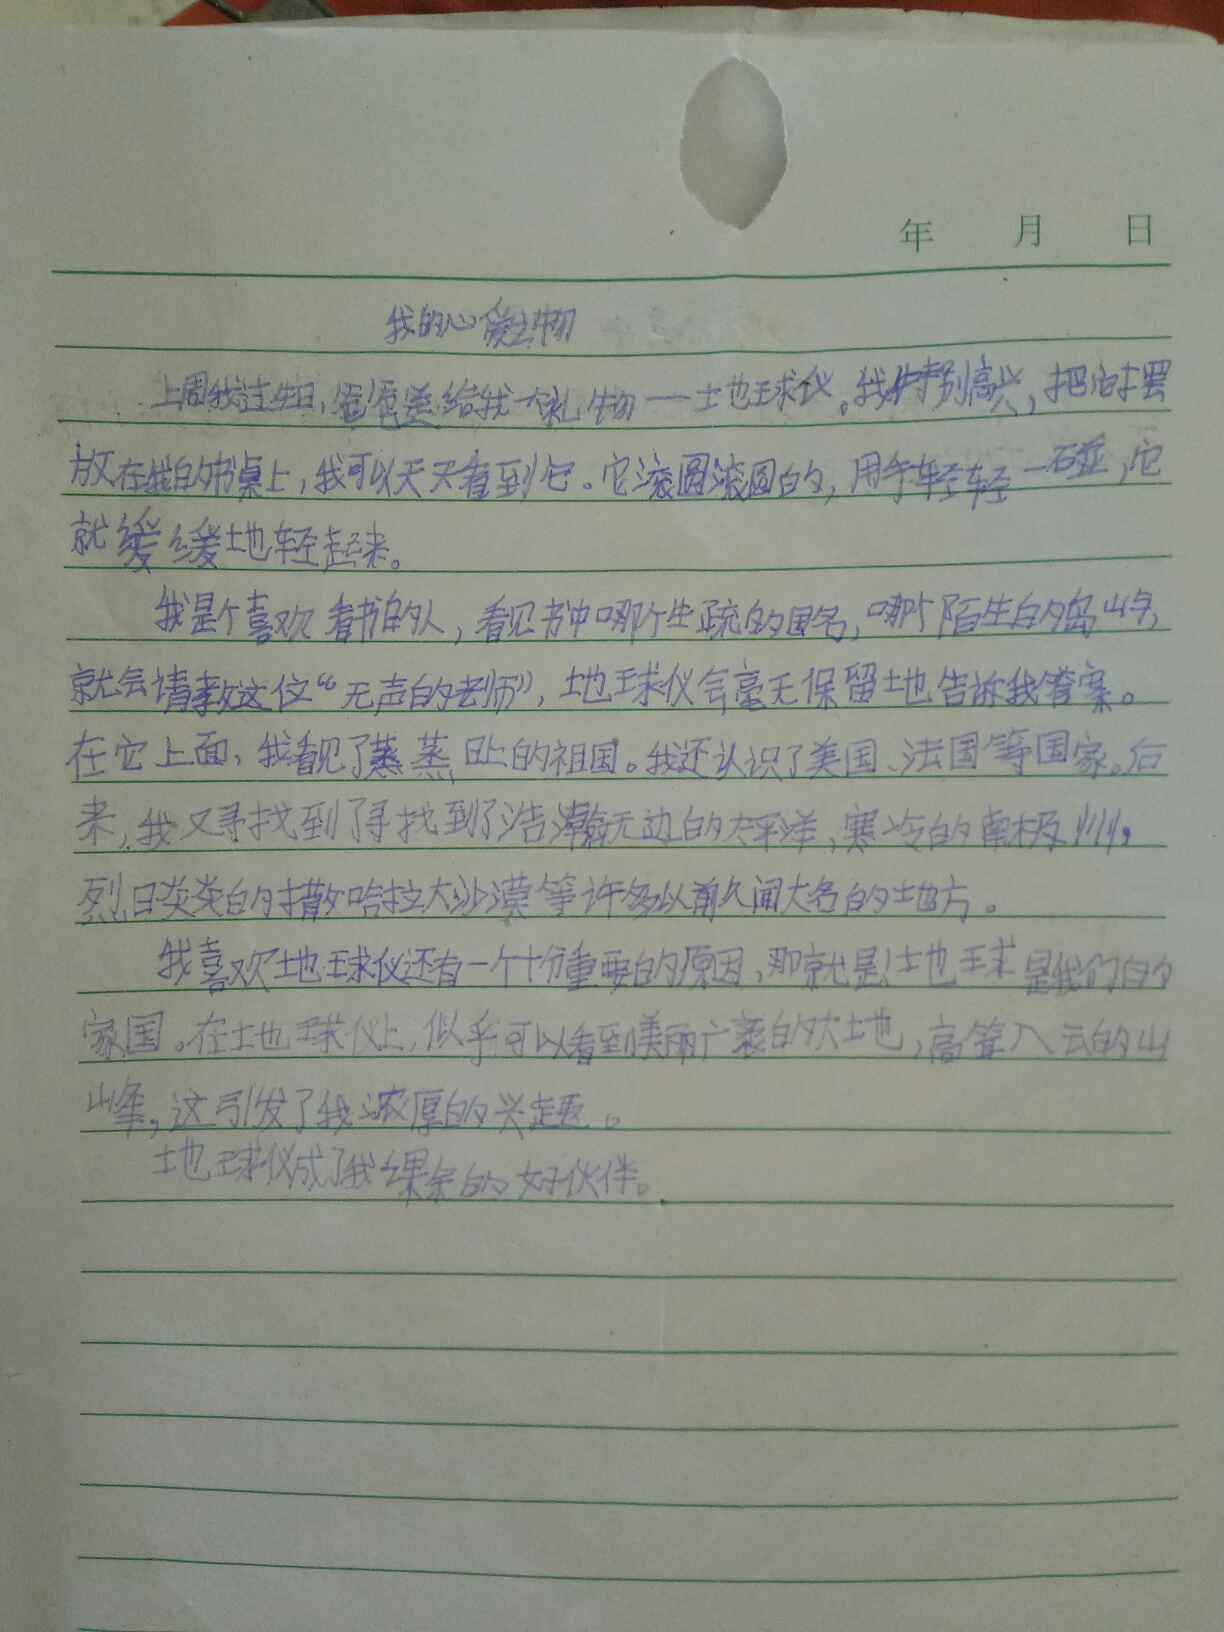 年 月 日
我的心爱之物
上周我过生日,爸爸送给我个礼物——地球仪。我特别高兴,把它摆
放在我的书桌上,我可以天天看到它。它滚圆滚圆的,用手轻轻一碰,它
就缓缓地轻起来。
我是个喜欢看书的人,看见书中哪个生疏的国名,哪个陌生的岛屿,
就会请教这位“无声的老师”,地球仪会毫无保留地告诉我答案。
在它上面,我看见了蒸蒸日上的祖国。我还认识了美国、法国等国家。后
来,我又寻找到了寻找到了浩瀚无边的太平洋,寒冷的南极州,
烈日炎炎的撒哈拉大沙漠等许多以前久闻大名的地方。
我喜欢地球仪还有一个十分重要的原因,那就是地球是我们的
家国。在地球仪上,似乎可以看到美丽广袤的大地,高耸入云的山
峰,这引发了我浓厚的兴趣。
地球仪成了我课余的好伙伴。